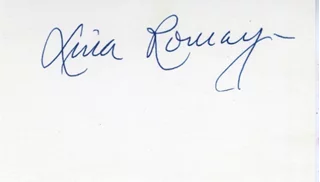 Lina Romay